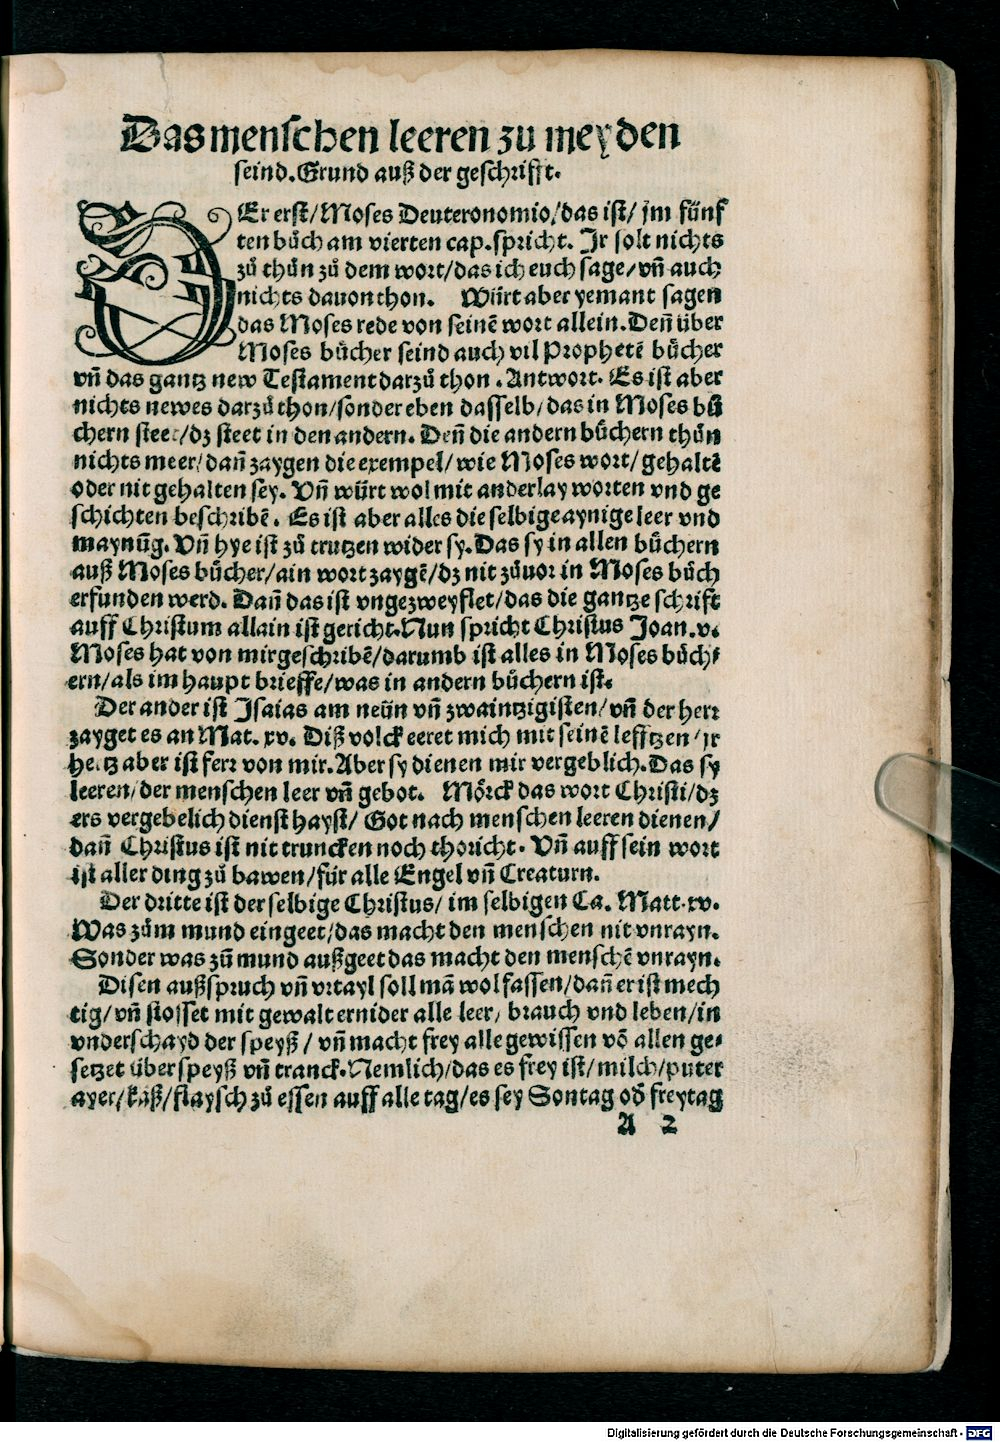 Das menschen leeren zu meyden
seind. Grund auß der geschrifft.
DEr erst/ Moses Deuteronomio/ das ist/ jm fünf
ten bůch am vierten cap. spricht. Ir solt nichts
zů thůn zů dem wort/ das ich euch sage/ vñ auch
nichts dauon thon. Würt aber yemant sagen
das Moses rede von seinē wort allein. Deñ über
Moses bůcher seind auch vil Prophetē bůcher
vñ das gantz new Testament darzů thon. Antwort. Es ist aber
nichts newes darzů thon/ sonder eben dasselb/ das in Moses bů
chern steet/ dz steet in den andern. Deñ die andern bůchern thůn
nichts meer/ dañ zaygen die exempel/ wie Moses wort/ gehaltē
oder nit gehalten sey. Vñ würt wol mit anderlay worten vnd ge
schichten beschribē. Es ist aber alles die selbige aynige leer vnd
maynũg. Vñ hye ist zů trutzen wider sy. Das sy in allen bůchern
auß Moses bůcher/ ain wort zaygē/ dz nit zůuor in Moses bůch
erfunden werd. Dañ das ist vngezweyflet/ das die gantze schrift
auff Christum allain ist gericht. Nun spricht Christus Joan. v.
Moses hat von mir geschribē/ darumb ist alles in Moses bůch⸗
ern/ als im haupt brieffe/ was in andern bůchern ist.
Der ander ist Isaias am neün vñ zwaintzigisten/ vñ der herr
zayget es an Mat. xv. Diß volck eeret mich mit seinē lefftzen/ jr
hertz aber ist ferr von mir. Aber sy dienen mir vergeblich. Das sy
leeren/ der menschen leer vñ gebot. Mörck das wort Christi/ dz
ers vergebelich dienst hayst/ Got nach menschen leeren dienen/
dañ Christus ist nit truncken noch thoricht. Vñ auff sein wort
ist aller ding zů bawen/ für alle Engel vñ Creaturn.
Der dritte ist der selbige Christus/ im selbigen Ca. Matt. xv.
Was zům mund eingeet/ das macht den menschen nit vnrayn.
Sonder was zů mund außgeet das macht den menschē vnrayn.
Disen außspruch vñ vrtayl soll mā wol fassen/ dañ er ist mech
tig/ vñ stosset mit gewalt ernider alle leer/ brauch vnd leben/ in
vnderschayd der speyß/ vñ macht frey alle gewissen vō allen ge⸗
setzet über speyß vñ tranck. Nemlich/ das es frey ist/ milch/ puter
ayer/ käß/ flaysch zů essen auff alle tag/ es sey Sontag od̄ freytag
A 2
Digitalisierung gefördert durch die Deutsche Forschungsgemeinschaft - DFG